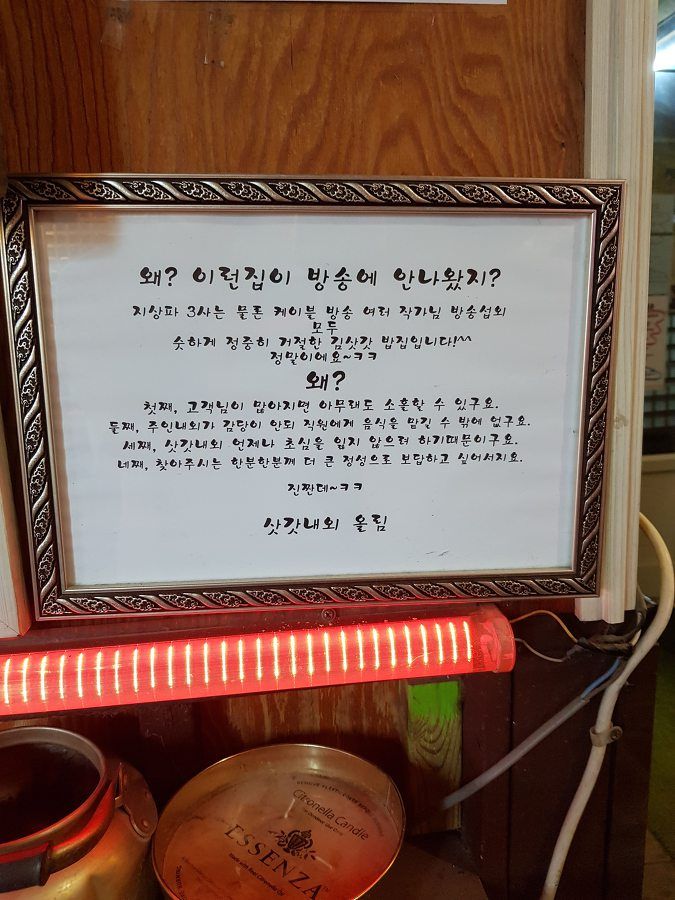 왜? 이런집이 방송에 안나왔지?
지상파 3사는 물론 케이블 방송 여러 작가님 방송섭외
모두
숫하게 정중히 거절한 김삿갓 밥집입니다!^^
정말이에요~ㅋㅋ
왜?
첫째, 고객님이 많아지면 아무래도 소홀할 수 있구요.
둘째, 주인내외가 감당이 안되 직원에게 음식을 맡길 수 밖에 없구요.
세째, 삿갓내외 언제나 초심을 잃지 않으려 하기때문이구요.
네째, 찾아주시는 한분한분께 더 큰 정성으로 보답하고 싶어서지요.
진짠데~ㅋㅋ
삿갓내외 올림
Citronella Candle
ESSENZA